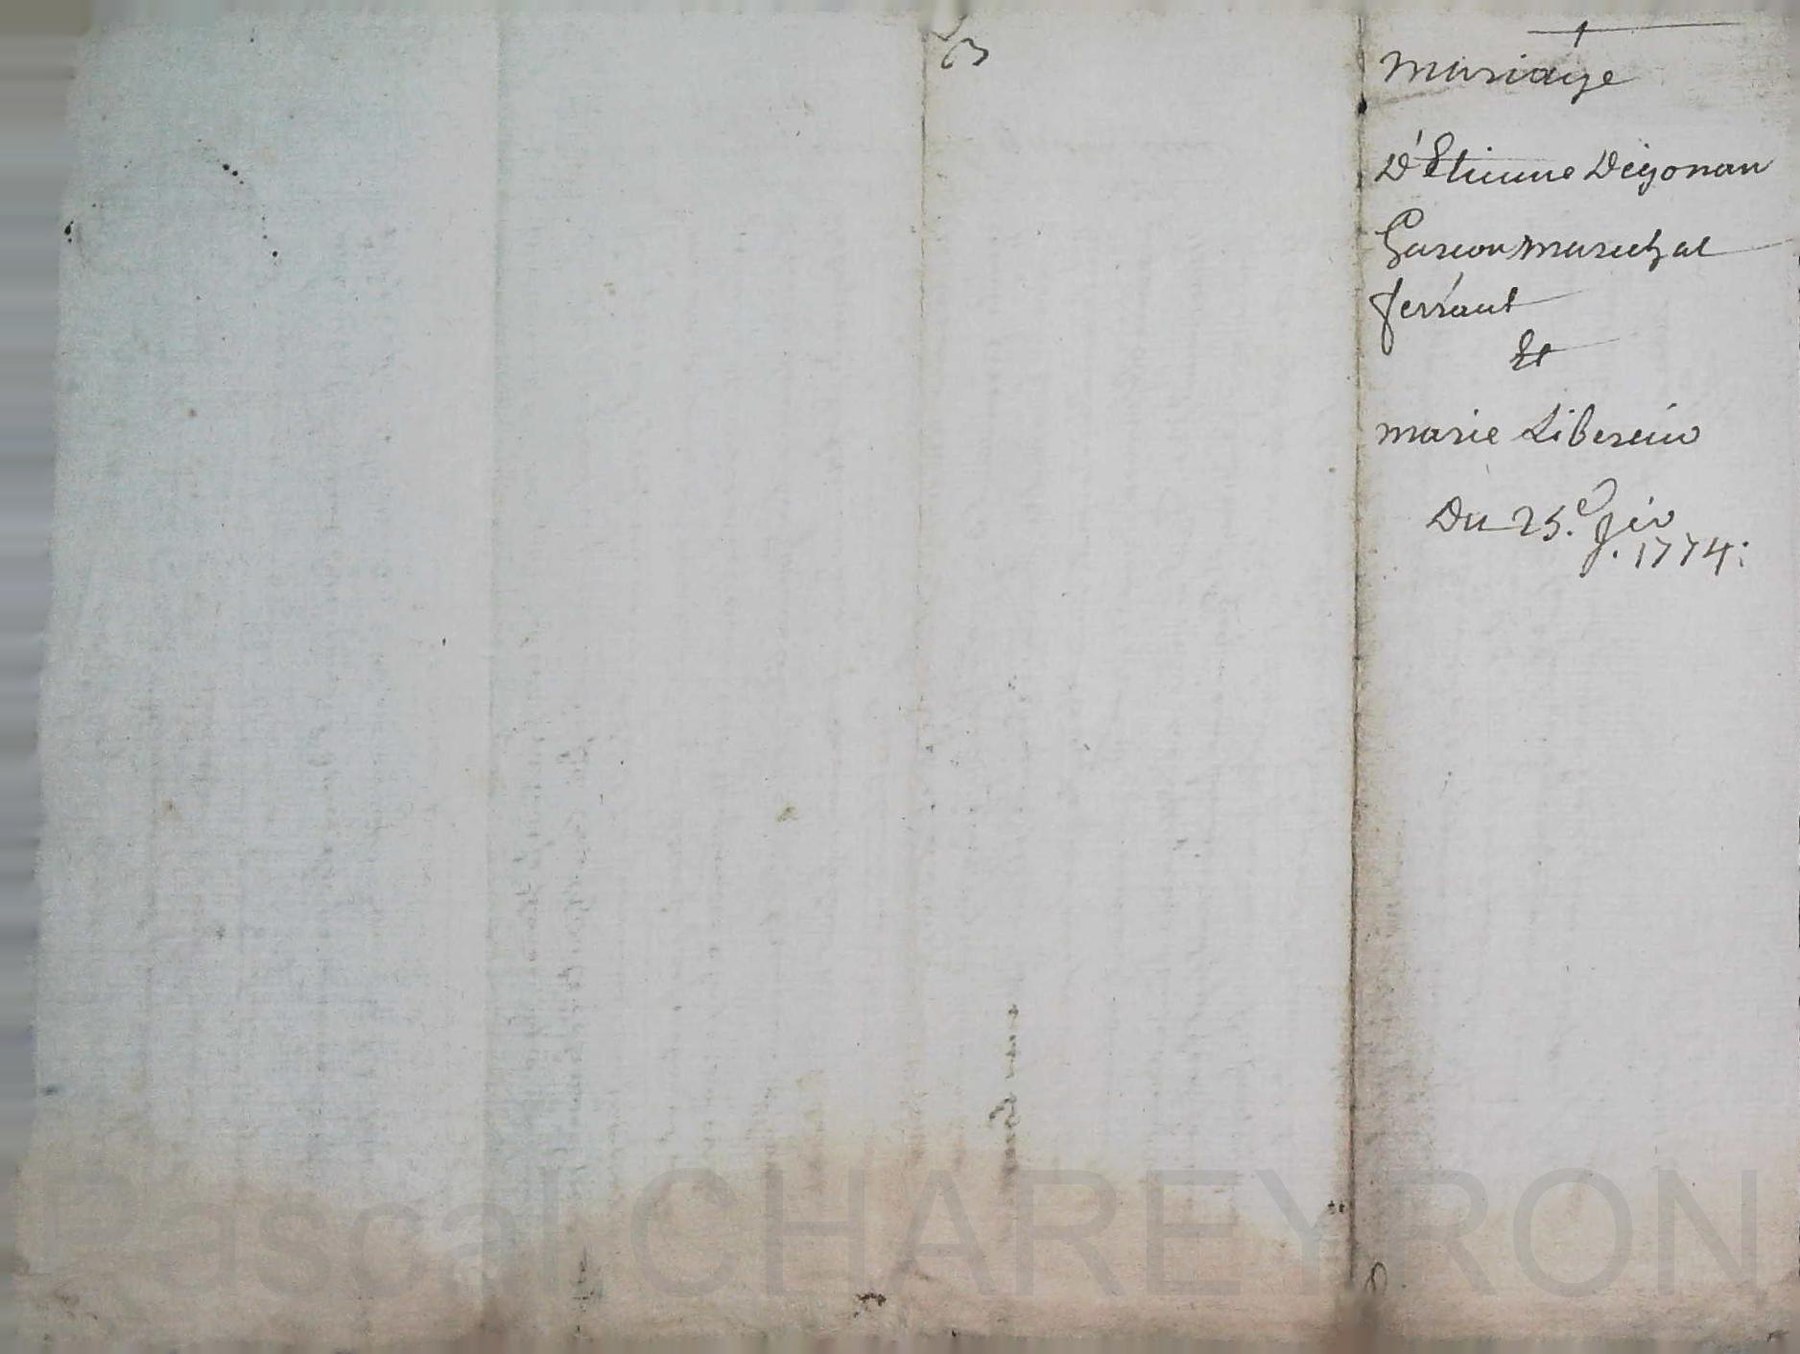 Mariage
D'Etienne Dégonan
Garcon marechal
ferrant
Et
marie Liberein
Du 25.e fév
1774:
Pascal CHAREYRON